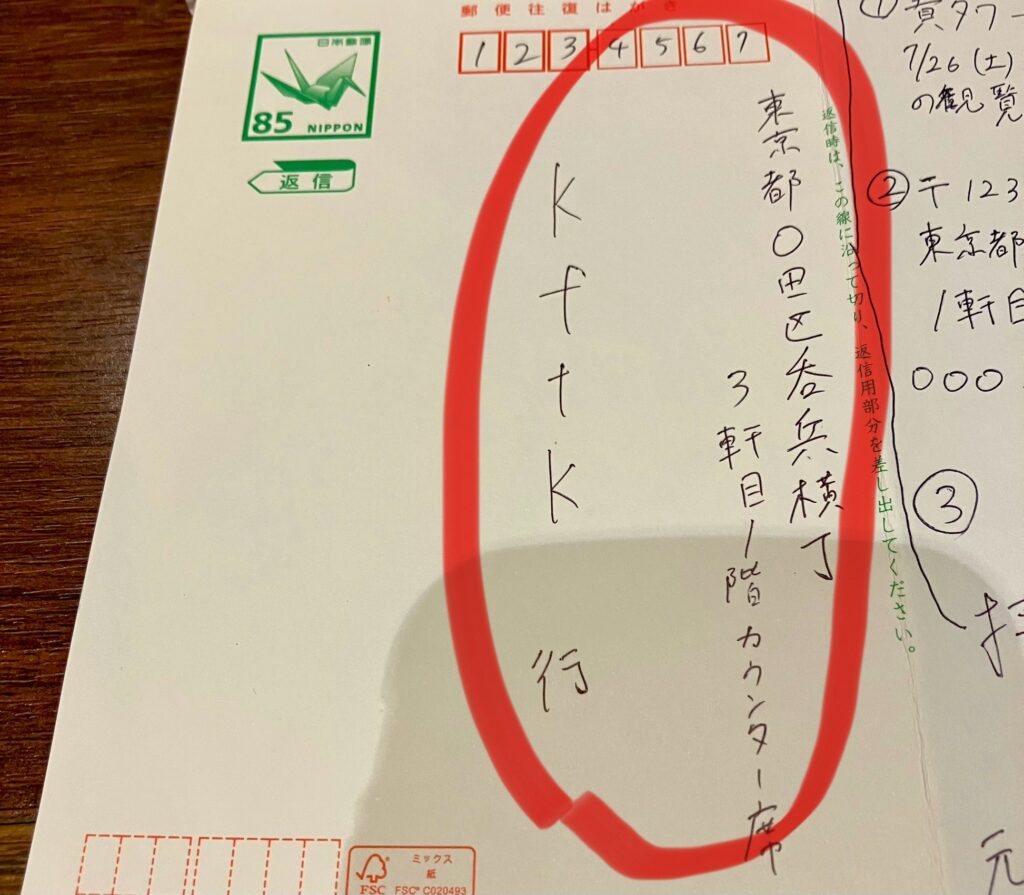 郵便往復はがき
1234567
日本郵便
85 NIPPON
返信
東京都〇田区呑兵横丁
3軒目1階カウンター席
kftk 行
返信時は、この線に沿って切り、返信用部分を差し出してください。
①
貴タワー
7/26(土)
の観覧
②〒123
東京都
1軒目
000
③
元
ミックス
紙
FSC
FSC® C020493